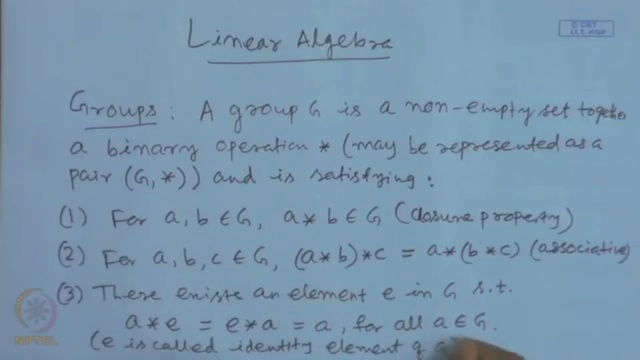 © CET
I.I.T. KGP
Linear Algebra
Groups : A group G is a non-empty set together
a binary operation * (may be represented as a
pair (G, *)) and is satisfying :
(1) For a, b ∈ G, a * b ∈ G (closure property)
(2) For a, b, c ∈ G, (a * b) * c = a * (b * c) (associative)
(3) There exists an element e in G s.t.
a * e = e * a = a, for all a ∈ G.
(e is called identity element
NPTEL